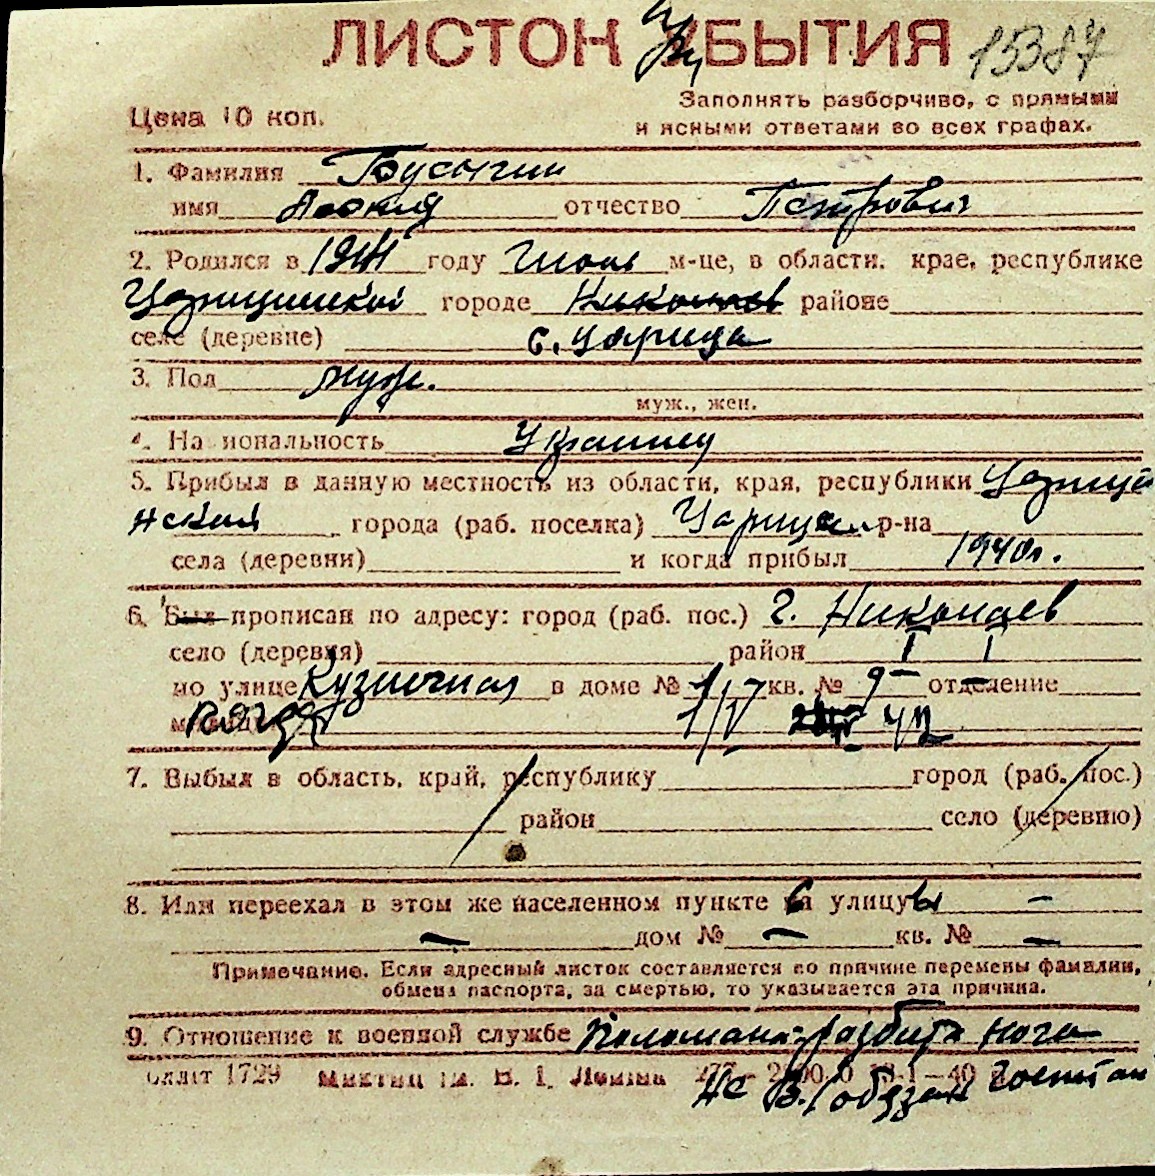 ЛИСТОН УБЫТИЯ 15387
Цена 10 коп. Заполнять разборчиво, с прямыми
и ясными ответами во всех графах.
1. Фамилия Бусыгин
имя Леонид отчество Петрович
2. Родился в году м-це, в области, крае, республике
городе Николаев районе
селе (деревне) с. Царица
3. Пол муж.
муж., жен.
4. На иональность Украинец
5. Прибыл в данную местность из области, края, республики
города (раб. поселка) р-на
села (деревни) и когда прибыл 1940г.
6. Был прописан по адресу: город (раб. пос.) г. Николаев
село (деревня) район
по улице Кузнечная в доме № 1/V кв. № 9 - отделение
1/V
7. Выбыл в область, край, республику город (раб. пос.)
район село (деревню)
8. Или переехал в этом же населенном пункте на улицу -
- дом № - кв. № -
Примечание. Если адресный листок составляется по причине перемены фамилии,
обмена паспорта, за смертью, то указывается эта причина.
9. Отношение к военной службе Поломана-разбита нога
1729 не в/обязан